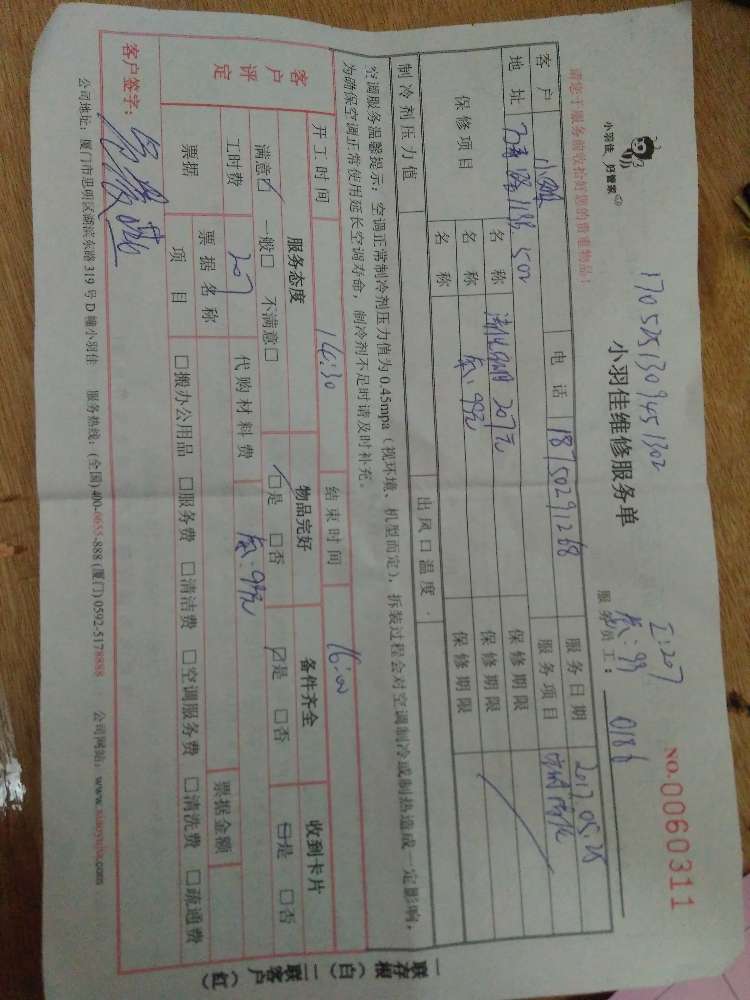 1705251309451302
小羽佳 好管家
小羽佳维修服务单
NO.0060311
工:207
氟:99
请您于服务前收拾好您的贵重物品!
服务员工: 0186
客户 小魏 电话 18750291268 服务日期 2017.05.25
地址 502 服务项目
保修项目 名称 207元 保修期限
名称 氟:99元 保修期限
名称 保修期限
制冷剂压力值 出风口温度
空调服务温馨提示:空调正常制冷剂压力值为0.45mpa(视环境、机型而定),拆装过程会对空调制冷或制热造成一定影响,
为确保空调正常使用延长空调寿命,制冷剂不足时请及时补充。
开工时间 14:30 结束时间 16:00
客户评定 服务态度 物品完好 备件齐全 收到卡片
满意☑ 一般□ 不满意□ ☑是 □否 ☑是 □否 ☑是 □否
工时费 207 代购材料费 氟:99元
票据 票据名称 票据金额
项目 □搬办公用品 □服务费 □清洁费 □空调服务费 □清洗费 □疏通费
客户签字:
公司地址:厦门市思明区湖滨东路319号D幢小羽佳 服务热线:(全国)400-0655-888 (厦门)0592-5178888 公司网站:www.xiaoyujia.com
一联存根(白) 二联客户(红)